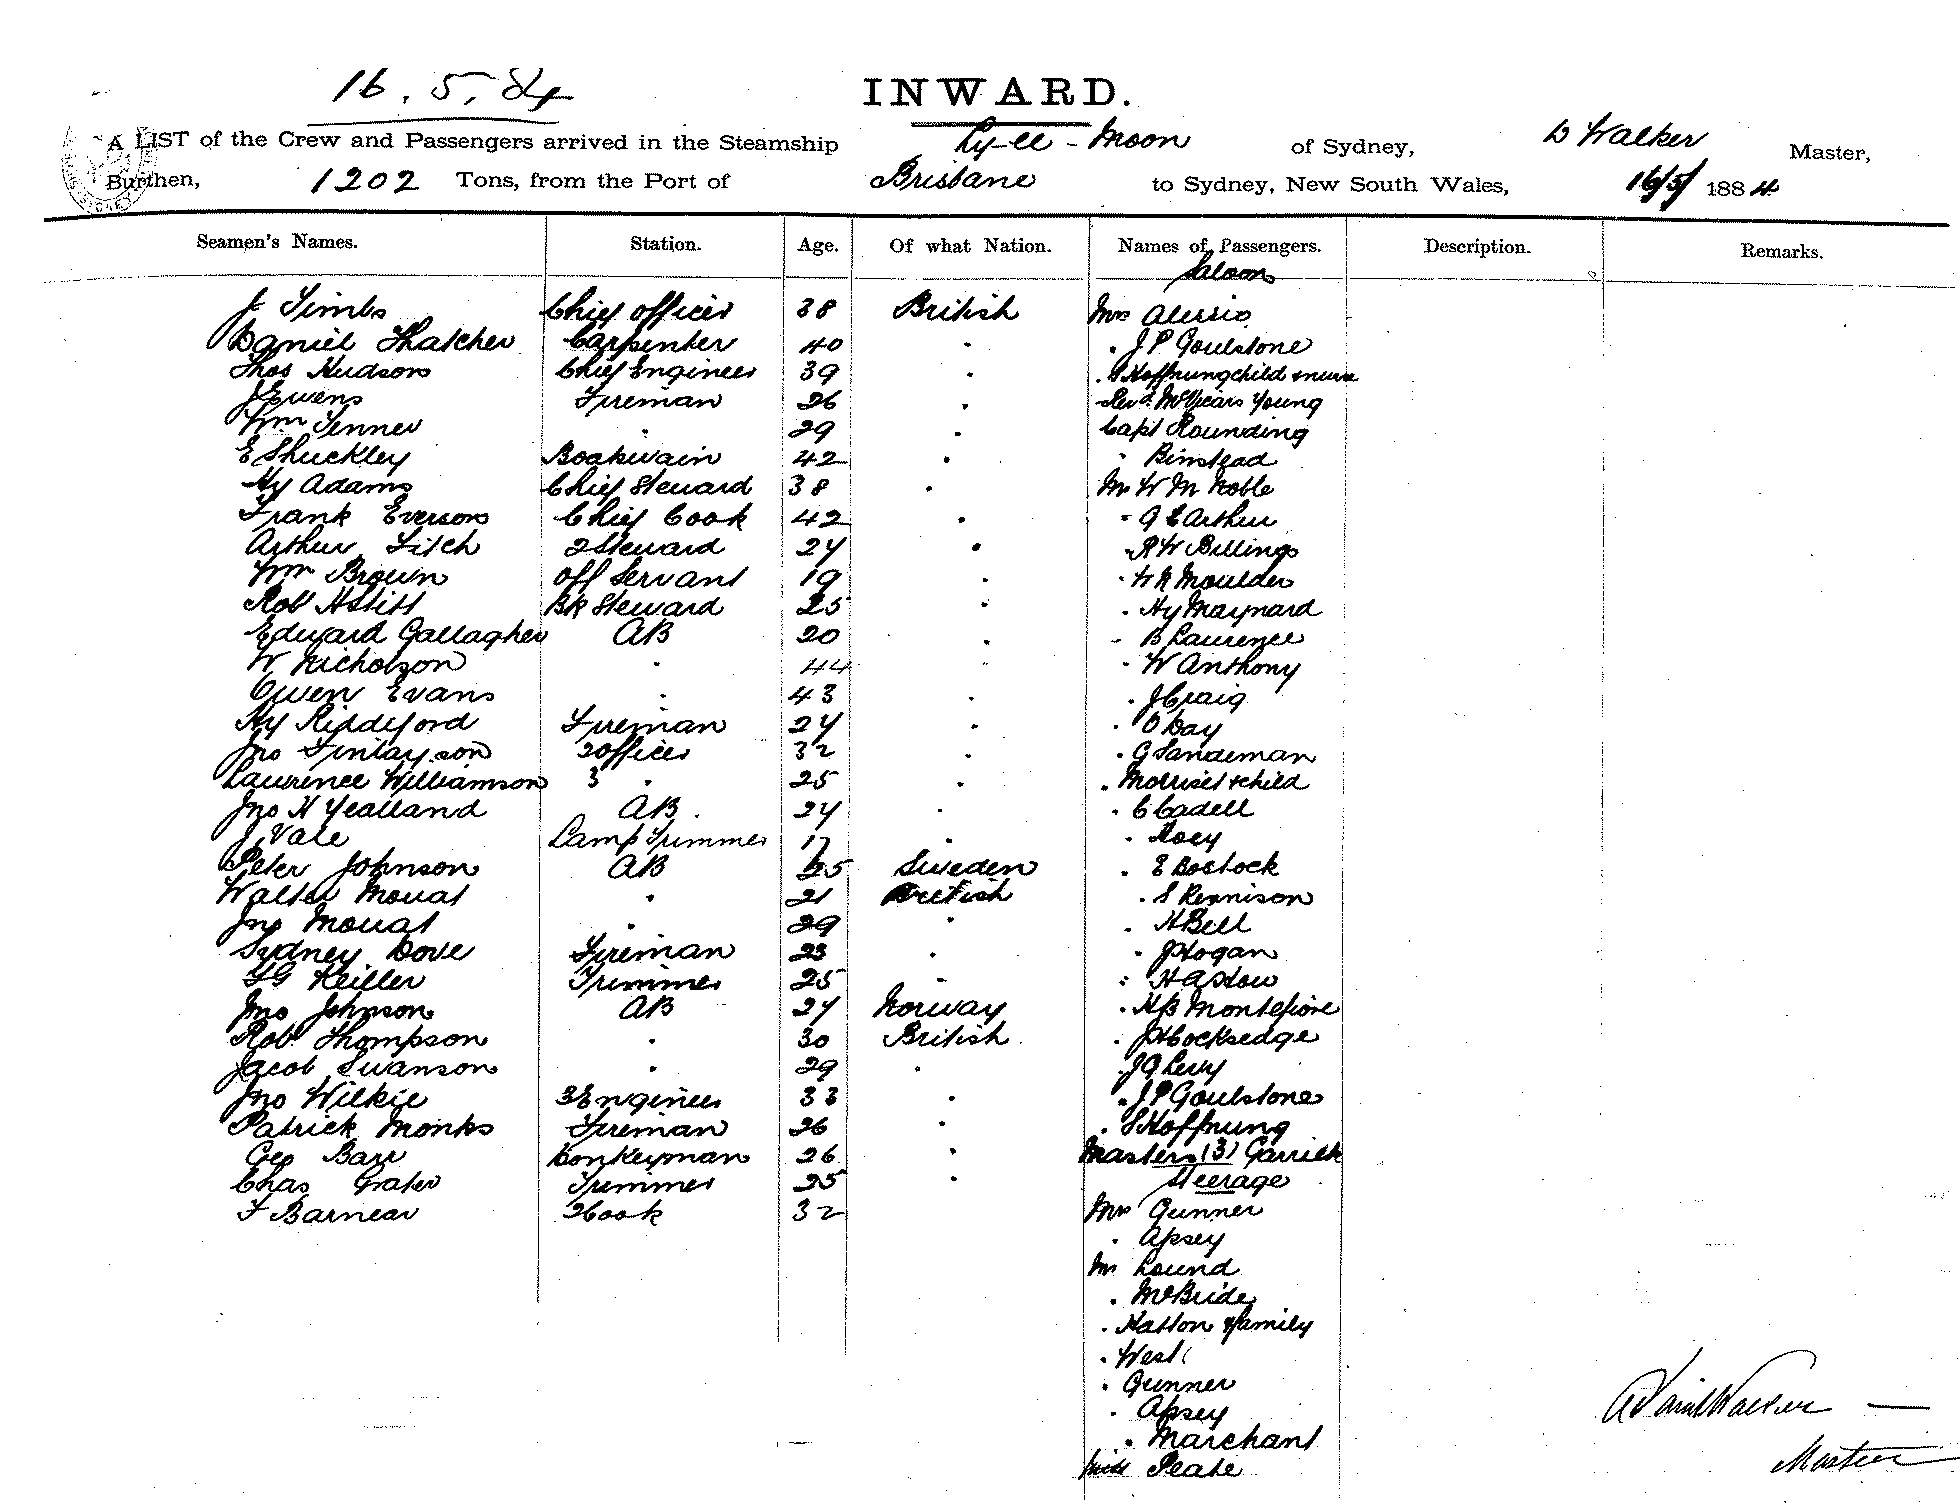 16.5.84
INWARD.
A LIST of the Crew and Passengers arrived in the Steamship Ly-ee-Moon of Sydney, D Walker Master,
Burthen, 1202 Tons, from the Port of Brisbane to Sydney, New South Wales, 16/5/ 1884
Seamen's Names. Station. Age. Of what Nation. Names of Passengers. Description. Remarks.
Saloon
J Timbs Chief Officer 38 British Mrs Alessio
Daniel Thatcher Carpenter 40 " " J P Goulstone
Thos Hudson Chief Engineer 39 " " S Hoffnung child & nurse
J Ewens Fireman 26 " Revd McVicars Young
Wm Jenner " 29 " Capt Rounding
E Shuckley Boatswain 42 " " Binstead
Hy Adams Chief Steward 38 " Mr W M Noble
Frank Everson Chief Cook 42 " " G E Arthur
Arthur Fitch 2 Steward 24 " " R W Billings
Wm Brown Off Servant 19 " " W R Moulder
Robt Bk Steward 25 " " Hy Maynard
Edward Gallagher AB 20 " " B Laurence
W Nicholson " 44 " " W Anthony
Owen Evans " 43 " J Craig
Hy Riddeford Fireman 24 " " O Day
Jno Finlayson 2 Officer 32 " " G Sandeman
Laurence Williamson 3 " 25 " " Morriset & child
Jno H Yealland AB 24 " " C Cadell
J Vale Lamp Trimmer 17 " " Hoey
Peter Johnson AB 25 Sweden " E Bostock
Walter Mouat " 21 British " S Rennison
Jno Mouat " 29 " " H Bell
Sydney Dove Fireman 23 " " J Hogan
Keiller Trimmer 25 " " H
Jno Johnson AB 24 Norway " H B Montefiore
Robt Thompson " 30 British " J H Cocksedge
Jacob Swanson " 29 " " J G Levy
Jno Wilkie 3 Engineer 33 " " J P Goulstone
Patrick Monks Fireman 26 " " S Hoffnung
Geo Barr Donkeyman 26 " Masters (3) Garrick
Chas Grater Trimmer 25 " Steerage
F Barnear 2 Cook 32 Mrs Gunner
" Apsey
Mr Lound
" McBride
" Hatton & family
" West
" Gunner
" Apsey
" Marchant
Miss Peate
Walker
Master